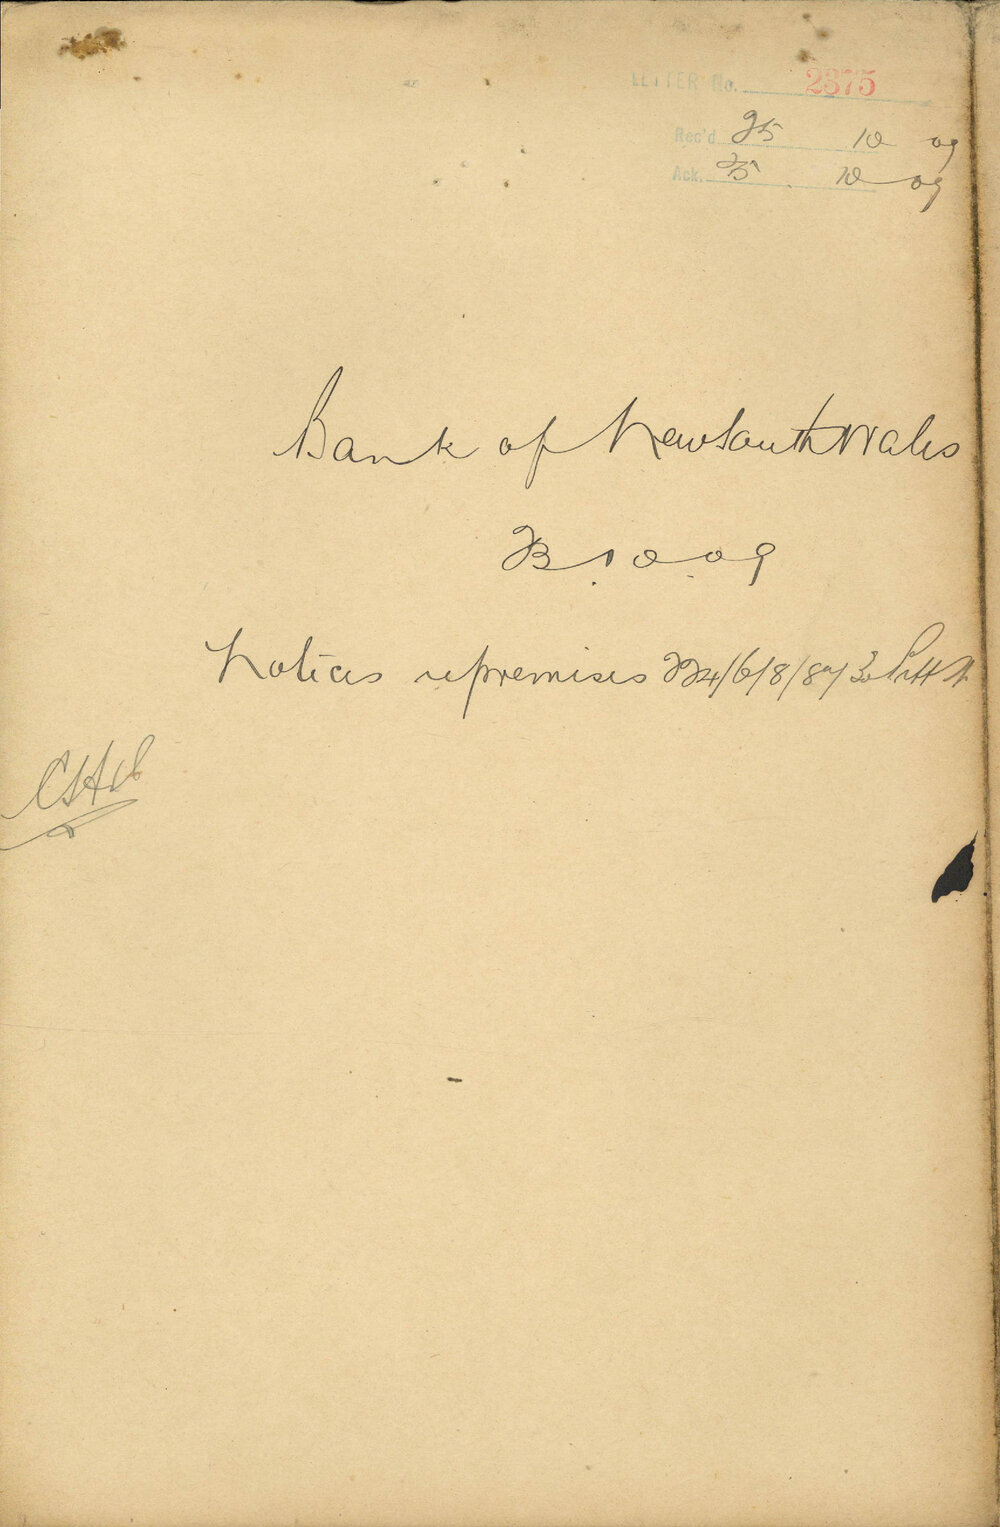 LETTER No. 2375
Rec'd 25 10 09
Ack. 25 10 09
Bank of New South Wales
23.10.09
Notices re premises 224/6/8/8a/30 Pitt St